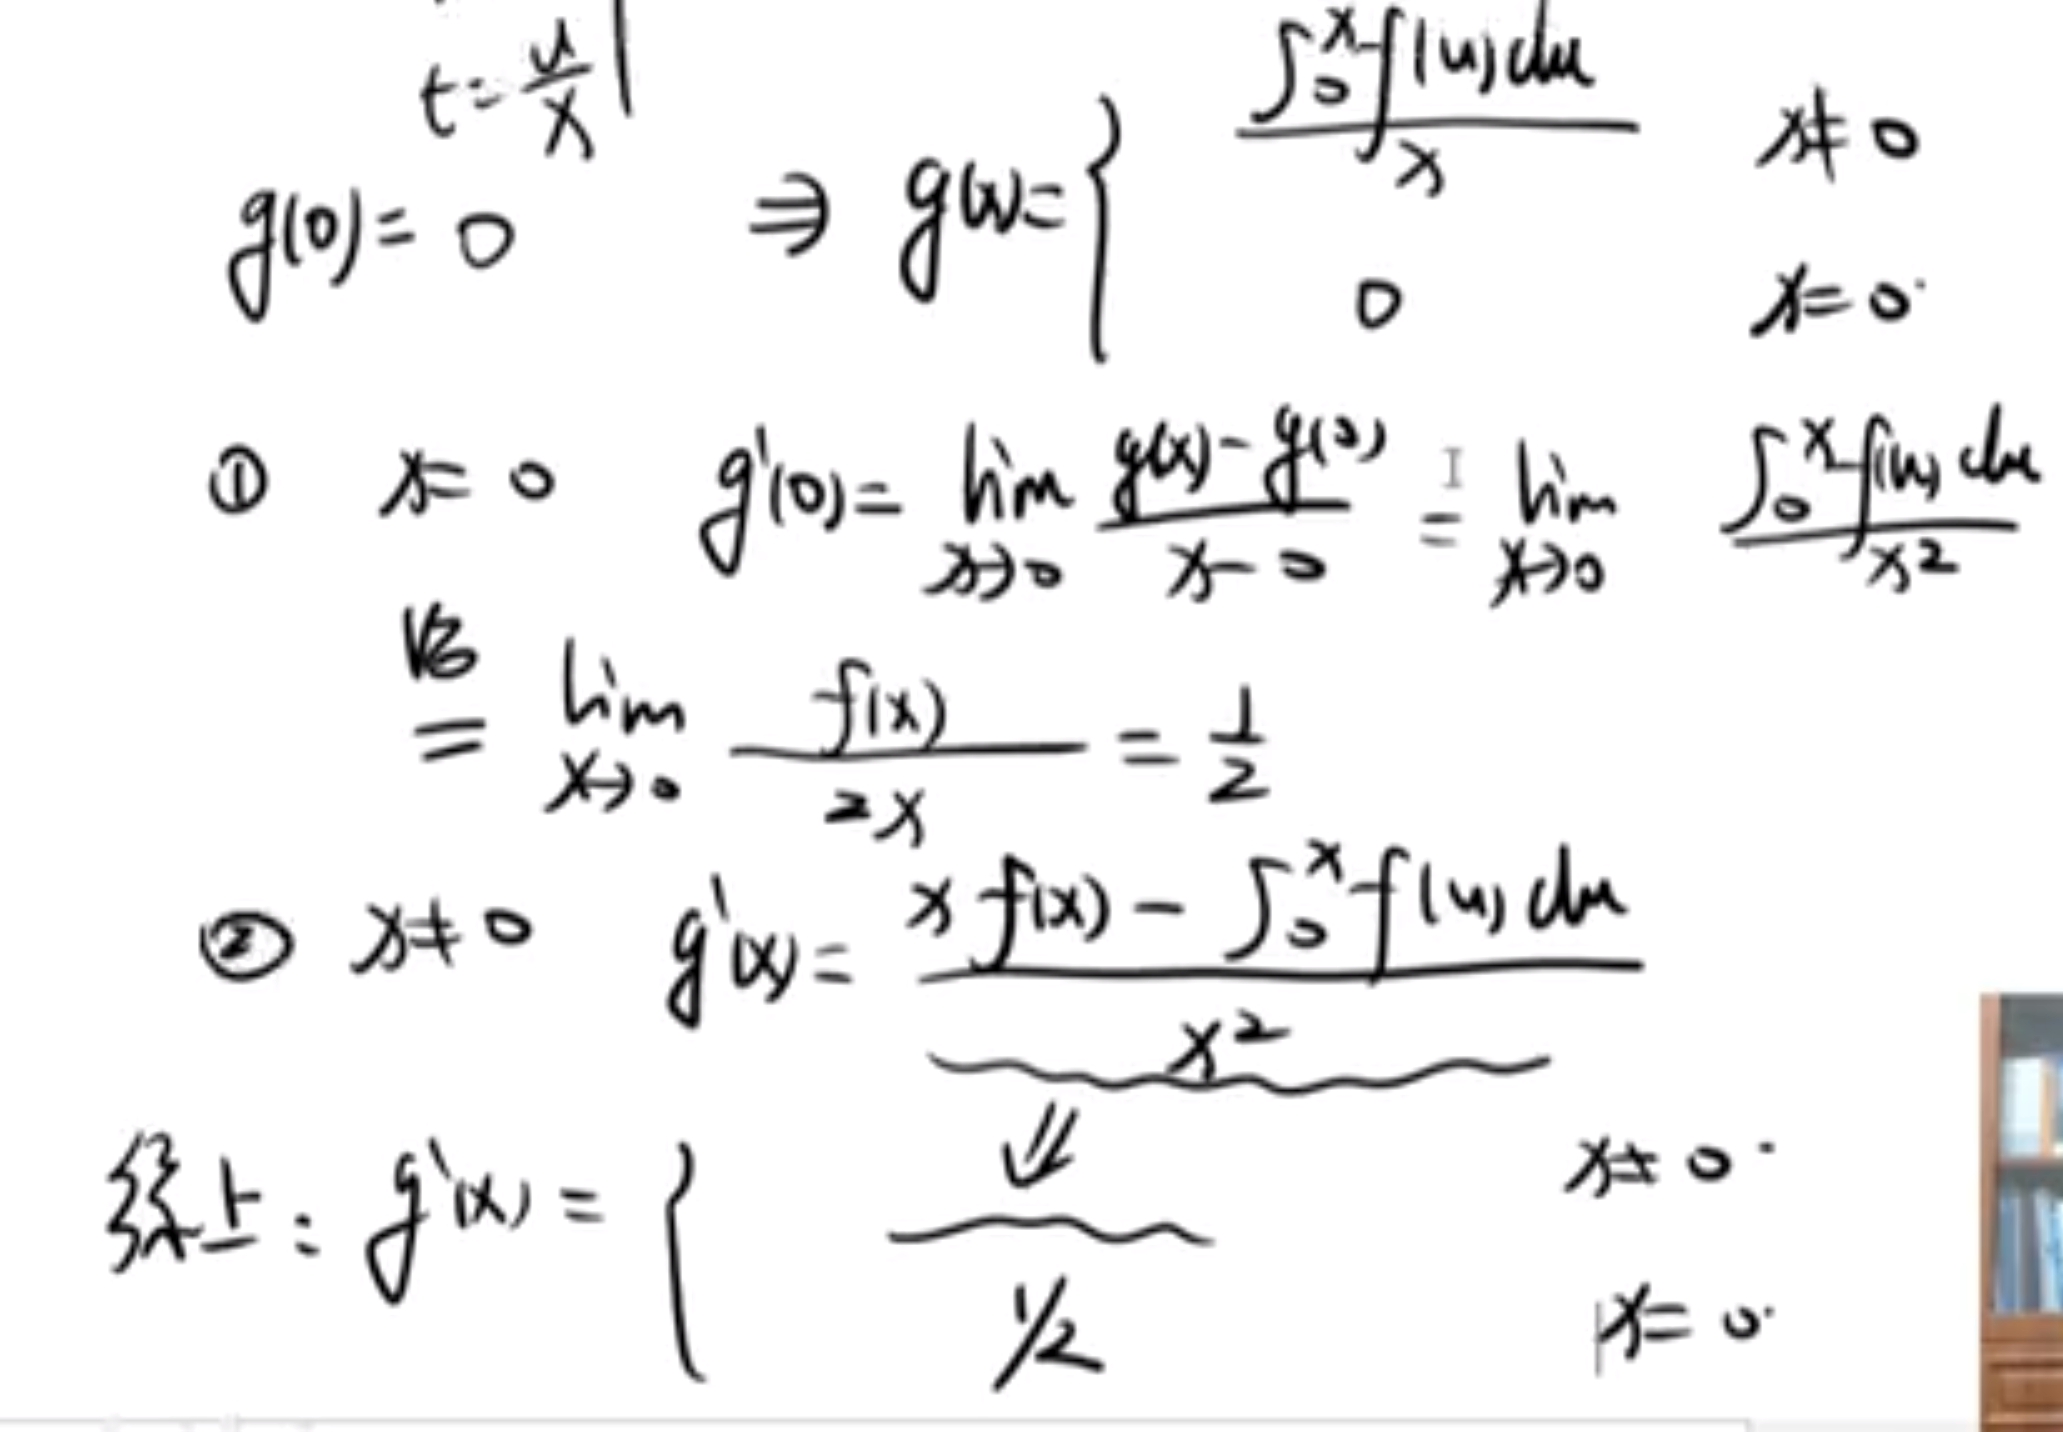 t = u/x
g(0) = 0 ⇒ g(x) = { ∫₀ˣ f(u)du / x x ≠ 0
0 x = 0.
① x = 0 g'(0) = lim x→0 g(x) - g(0) / x - 0 = lim x→0 ∫₀ˣ f(u)du / x²
洛
= lim x→0 f(x) / 2x = 1/2
② x ≠ 0 g'(x) = x f(x) - ∫₀ˣ f(u)du / x²
⇓
综上: g'(x) = { x ≠ 0.
1/2 x = 0.